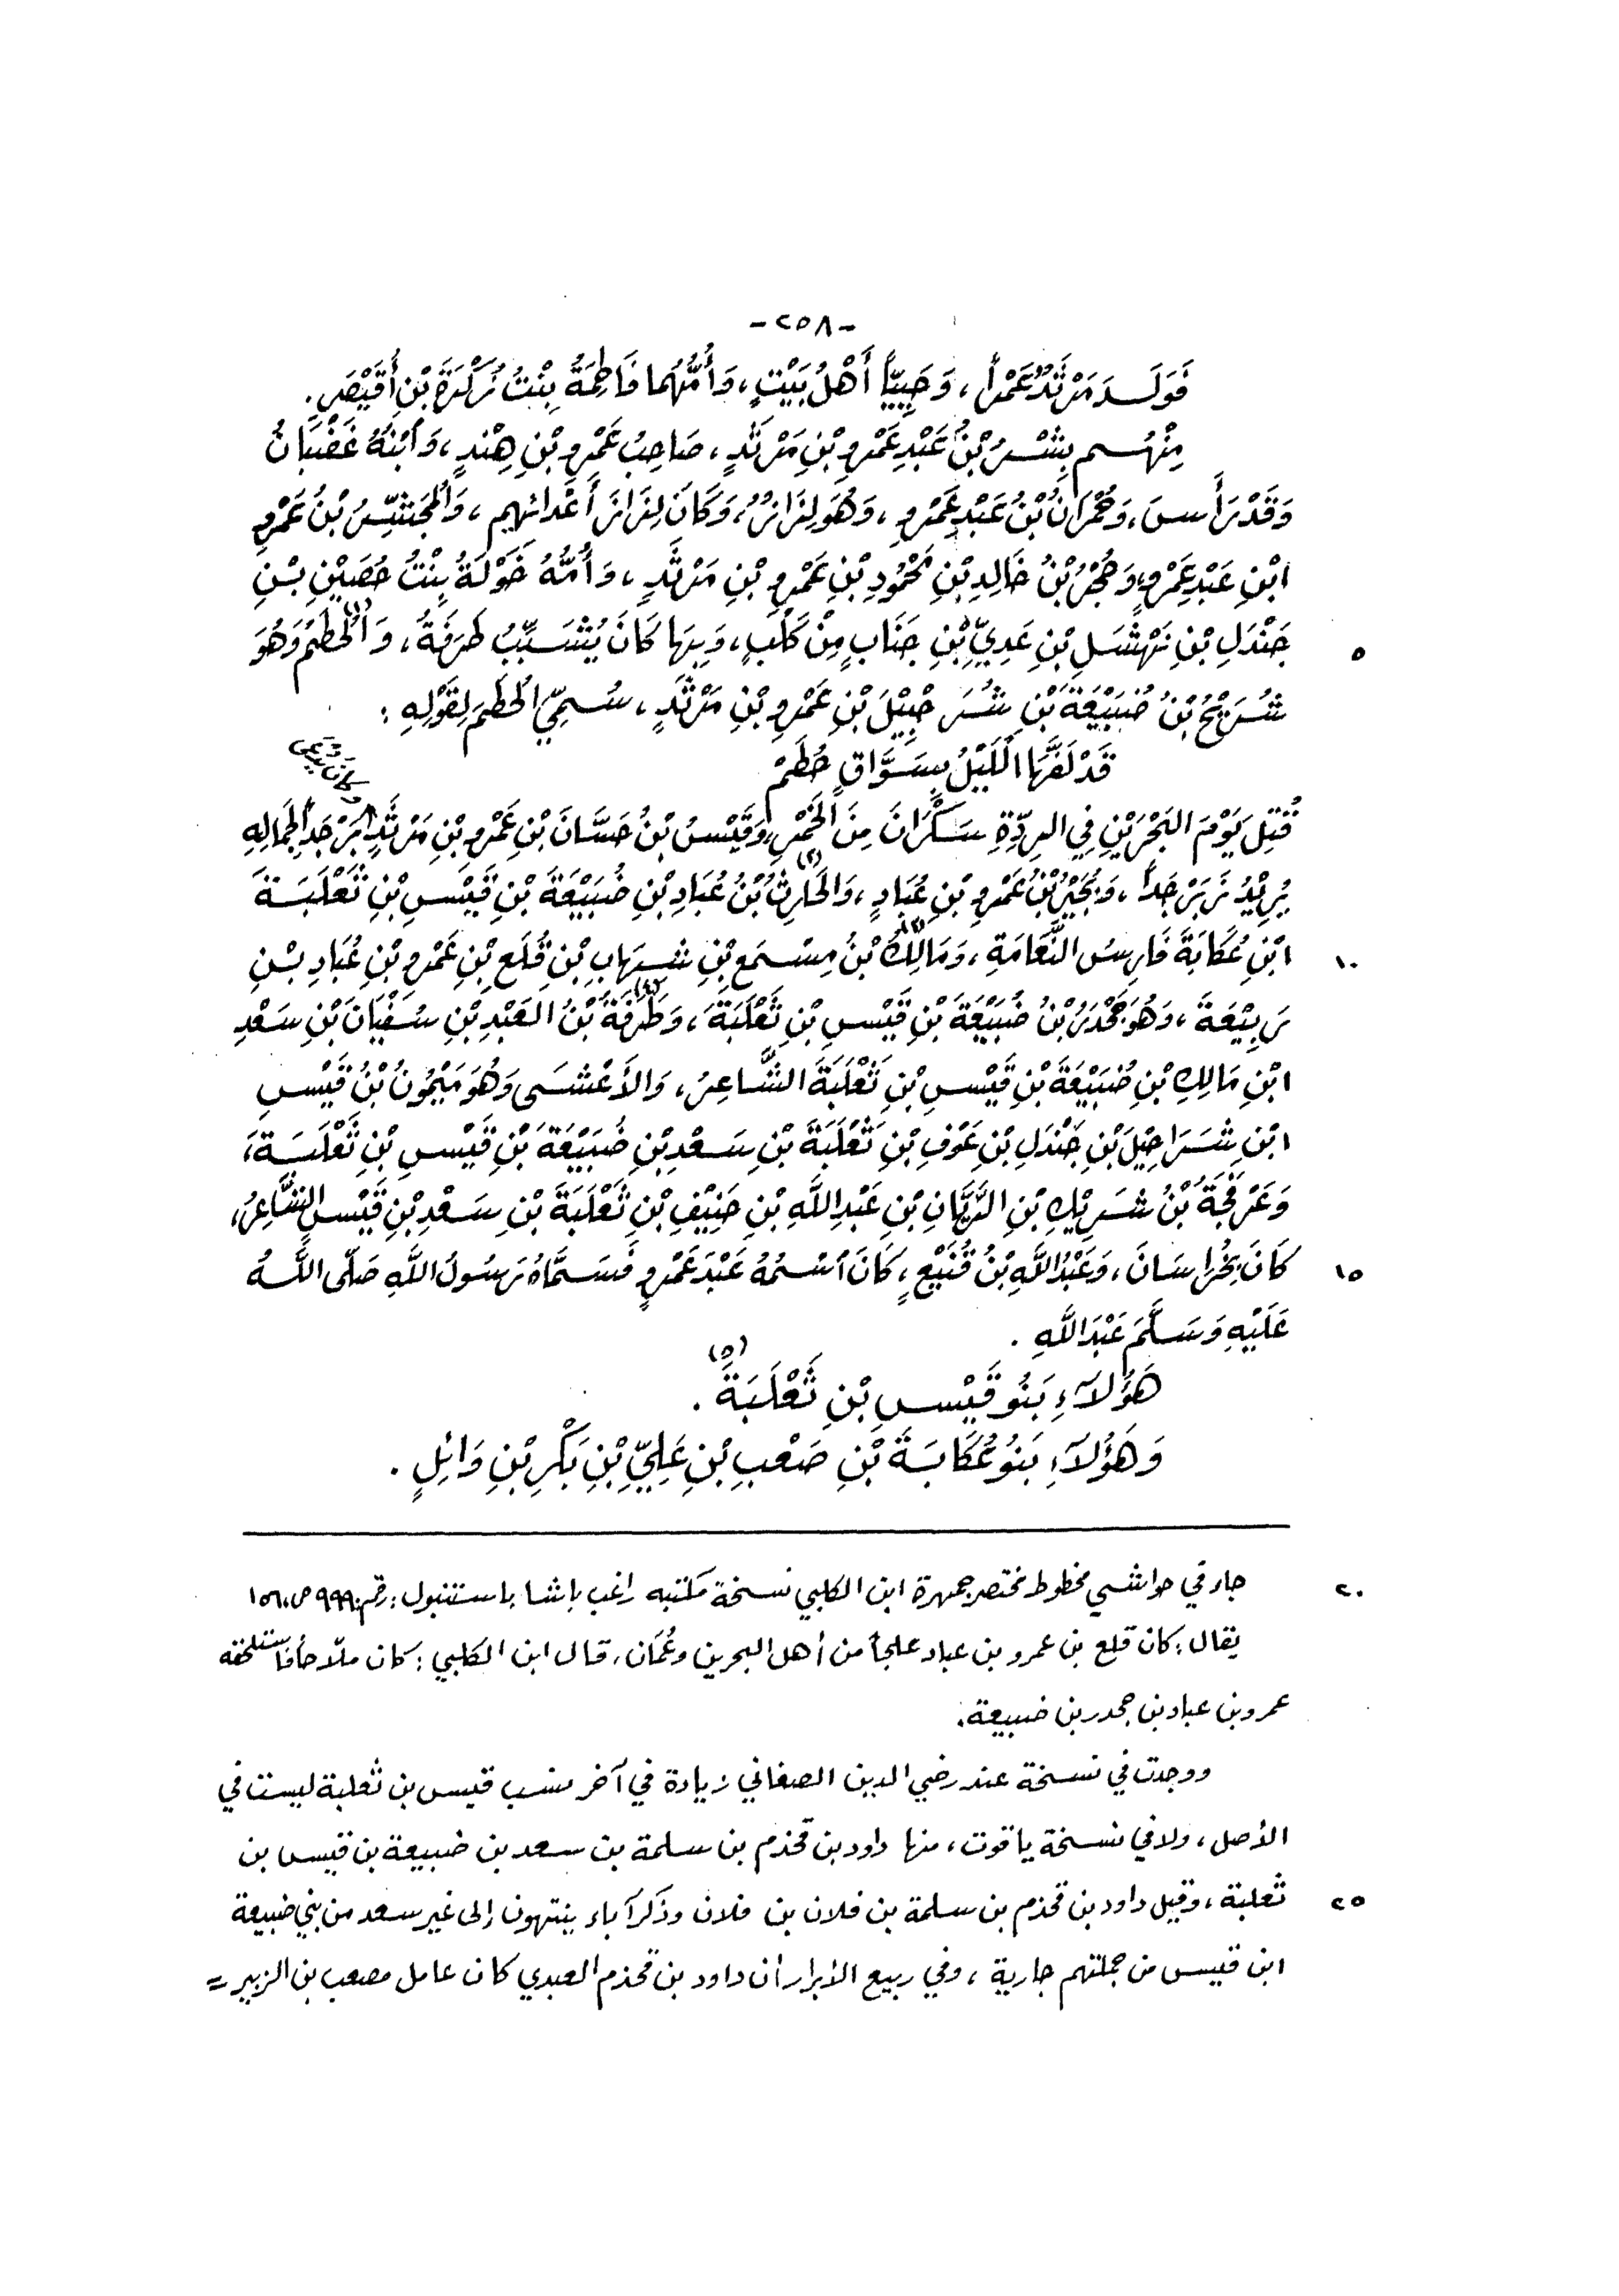 -٢٥٨-
فَوَلَدَ مَرْثَدٌ عَمْراً، وَحَبِيباً أَهْلُ بَيْتٍ، وَأُمُّهُمَا فَاطِمَةُ بِنْتُ بْنِ أُقَيْصِرٍ.
مِنْهُم بِشْرُ بْنُ عَبْدِ عَمْرِو بْنِ مَرْثَدٍ، صَاحِبُ عَمْرِو بْنِ هِنْدٍ، وَٱبْنُهُ غَضْبَانُ
وَقَدْ رَأَسَ، وَحُمْرَانُ بْنُ عَبْدِ عَمْرٍو، وَهُوَ لِزَازٌ، وَكَانَ لِزَازَ أَعْدَائِهِم، وَالمُجَشِّرُ بْنُ عَمْرِو
ابْنِ عَبْدِ عَمْرٍو، وَحُجْرُ بْنُ خَالِدِ بْنِ مَحْمُودِ بْنِ عَمْرِو بْنِ مَرْثَدٍ، وَأُمُّهُ خَوْلَةُ بِنْتُ حُصَيْنِ بْنِ
٥ جَنْدَلِ بْنِ نَهْشَلِ بْنِ عَدِيِّ بْنِ جَنَابٍ مِنْ كَلْبٍ، وَبِهَا كَانَ يُشَبِّبُ طَرَفَةُ، وَالحُطَمُ (١) وَهُوَ
شُرَيْحُ بْنُ ضُبَيْعَةَ بْنِ شُرَحْبِيْلَ بْنِ عَمْرِو بْنِ مَرْثَدٍ، سُمِّيَ الحُطَمَ لِقَوْلِهِ:
قَدْ لَفَّهَا اللَّيْلُ بِسَوَّاقٍ حُطَمْ
قُتِلَ يَوْمَ البَحْرَيْنِ فِي الرِّدَّةِ سَكْرَانَ مِنَ الخَمْرِ، وَقَيْسُ بْنُ حَسَّانَ بْنِ عَمْرِو بْنِ مَرْثَدٍ بَرْجَدَ لِجَمَالِهِ
يُرِيْدُ زَبَرْجَداً، وَبُجَيْرُ بْنُ عَمْرِو بْنِ عُبَادٍ، وَالحَارِثُ (٢) بْنُ عُبَادِ بْنِ ضُبَيْعَةَ بْنِ قَيْسِ بْنِ ثَعْلَبَةَ
١٠ ابْنِ عُكَابَةَ فَارِسُ النَّعَامَةِ، وَمَالِكُ (٣) بْنُ مِسْمَعِ بْنِ شِهَابِ بْنِ قَلَعِ بْنِ عَمْرِو بْنِ عُبَادِ بْنِ
رَبِيْعَةَ، وَهُوَ جَحْدَرُ بْنُ ضُبَيْعَةَ بْنِ قَيْسِ بْنِ ثَعْلَبَةَ، وَطَرَفَةُ (٤) بْنُ العَبْدِ بْنِ سُفْيَانَ بْنِ سَعْدِ
ابْنِ مَالِكِ بْنِ ضُبَيْعَةَ بْنِ قَيْسِ بْنِ ثَعْلَبَةَ الشَّاعِرُ، وَالأَعْشَى وَهُوَ مَيْمُونُ بْنُ قَيْسِ
ابْنِ شَرَاحِيْلَ بْنِ جَنْدَلِ بْنِ عَوْفِ بْنِ ثَعْلَبَةَ بْنِ سَعْدِ بْنِ ضُبَيْعَةَ بْنِ قَيْسِ بْنِ ثَعْلَبَةَ،
وَعَرْفَجَةُ بْنُ شَرِيْكِ بْنِ الرَّيَّانِ بْنِ عَبْدِ اللَّهِ بْنِ حَنِيْفِ بْنِ ثَعْلَبَةَ بْنِ سَعْدِ بْنِ قَيْسٍ الشَّاعِرُ،
١٥ كَانَ بِخُرَاسَانَ، وَعَبْدُ اللَّهِ بْنُ قُنَيْعٍ، كَانَ ٱسْمُهُ عَبْدَ عَمْرٍو فَسَمَّاهُ رَسُولُ اللَّهِ صَلَّى اللَّهُ
عَلَيْهِ وَسَلَّمَ عَبْدَ اللَّهِ.
هَؤُلَآءِ بَنُو قَيْسِ بْنِ ثَعْلَبَةَ (٥).
وَهَؤُلَآءِ بَنُو عُكَابَةَ بْنِ صَعْبِ بْنِ عَلِيِّ بْنِ بَكْرِ بْنِ وَائِلٍ.
٢٠ جاء في حواشي مخطوط مختصر جمهرة ابن الكلبي نسخة مكتبه راغب باشا باستنبول: رقم: ٩٩٩ ص: ١٥٦
يقال: كان قلع بن عمرو بن عباد علجاً من أهل البحرين وعُمَان، قال ابن الكلبي: كان ملّاحاً فاستلحقه
عمرو بن عباد بن جحدر بن ضبيعة.
ووجدت في نسخة عند رضي الدين الصغاني زيادة في آخر نسب قيس بن ثعلبة ليست في
الأصل، ولا في نسخة ياقوت، منها داود بن قحذم بن سلمة بن سعد بن ضبيعة بن قيس بن
٢٥ ثعلبة، وقيل داود بن قحذم بن سلمة بن فلان بن فلان وذكر آباء ينتهون إلى غير سعد من بني ضبيعة
ابن قيس من جملتهم جارية، وفي ربيع الأبرار أن داود بن قحذم العبدي كان عامل مصعب بن الزبير =